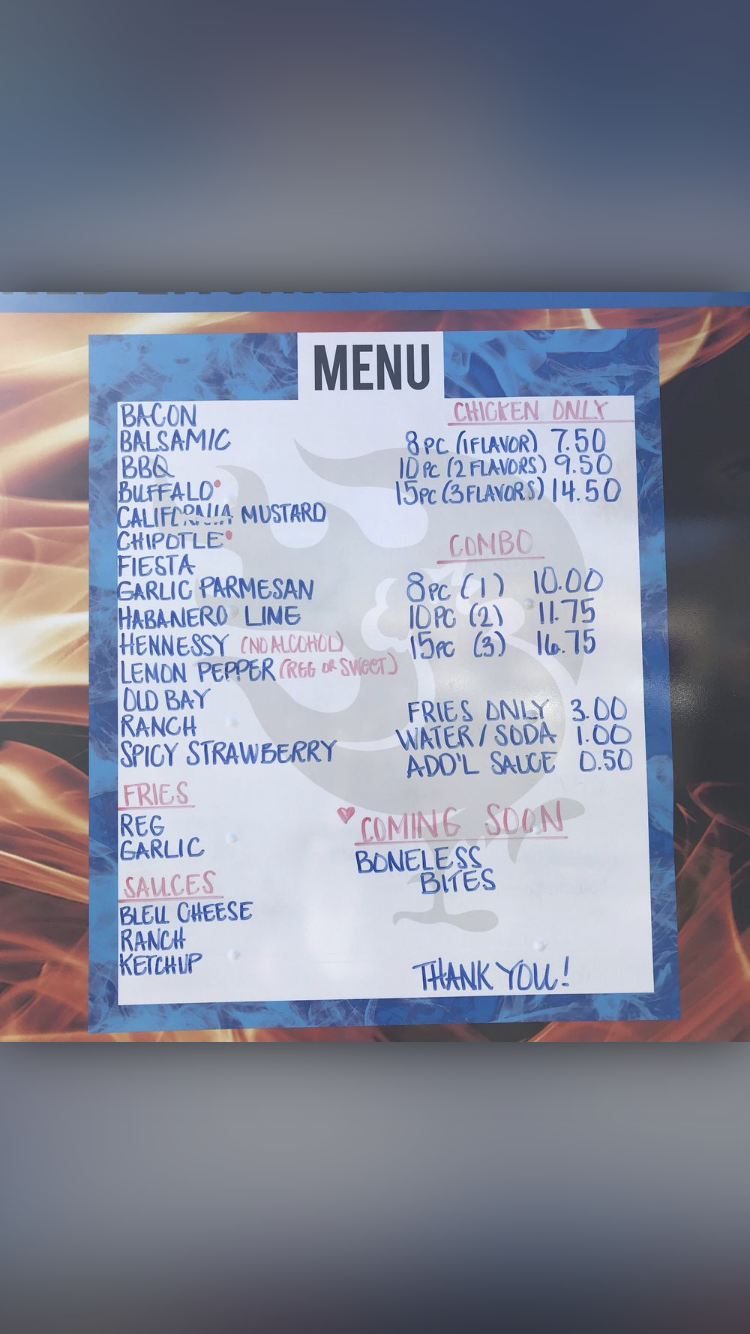 MENU
BACON
BALSAMIC
BBQ
BUFFALO
CALIFORNIA MUSTARD
CHIPOTLE
FIESTA
GARLIC PARMESAN
HABANERO LIME
HENNESSY (NO ALCOHOL)
LEMON PEPPER (REG OR SWEET)
OLD BAY
RANCH
SPICY STRAWBERRY
FRIES
REG
GARLIC
SAUCES
BLEU CHEESE
RANCH
KETCHUP
CHICKEN ONLY
8PC (1 FLAVOR) 7.50
10PC (2 FLAVORS) 9.50
15PC (3 FLAVORS) 14.50
COMBO
8PC (1) 10.00
10PC (2) 11.75
15PC (3) 16.75
FRIES ONLY 3.00
WATER / SODA 1.00
ADD'L SAUCE 0.50
♥ COMING SOON
BONELESS
BITES
THANK YOU!